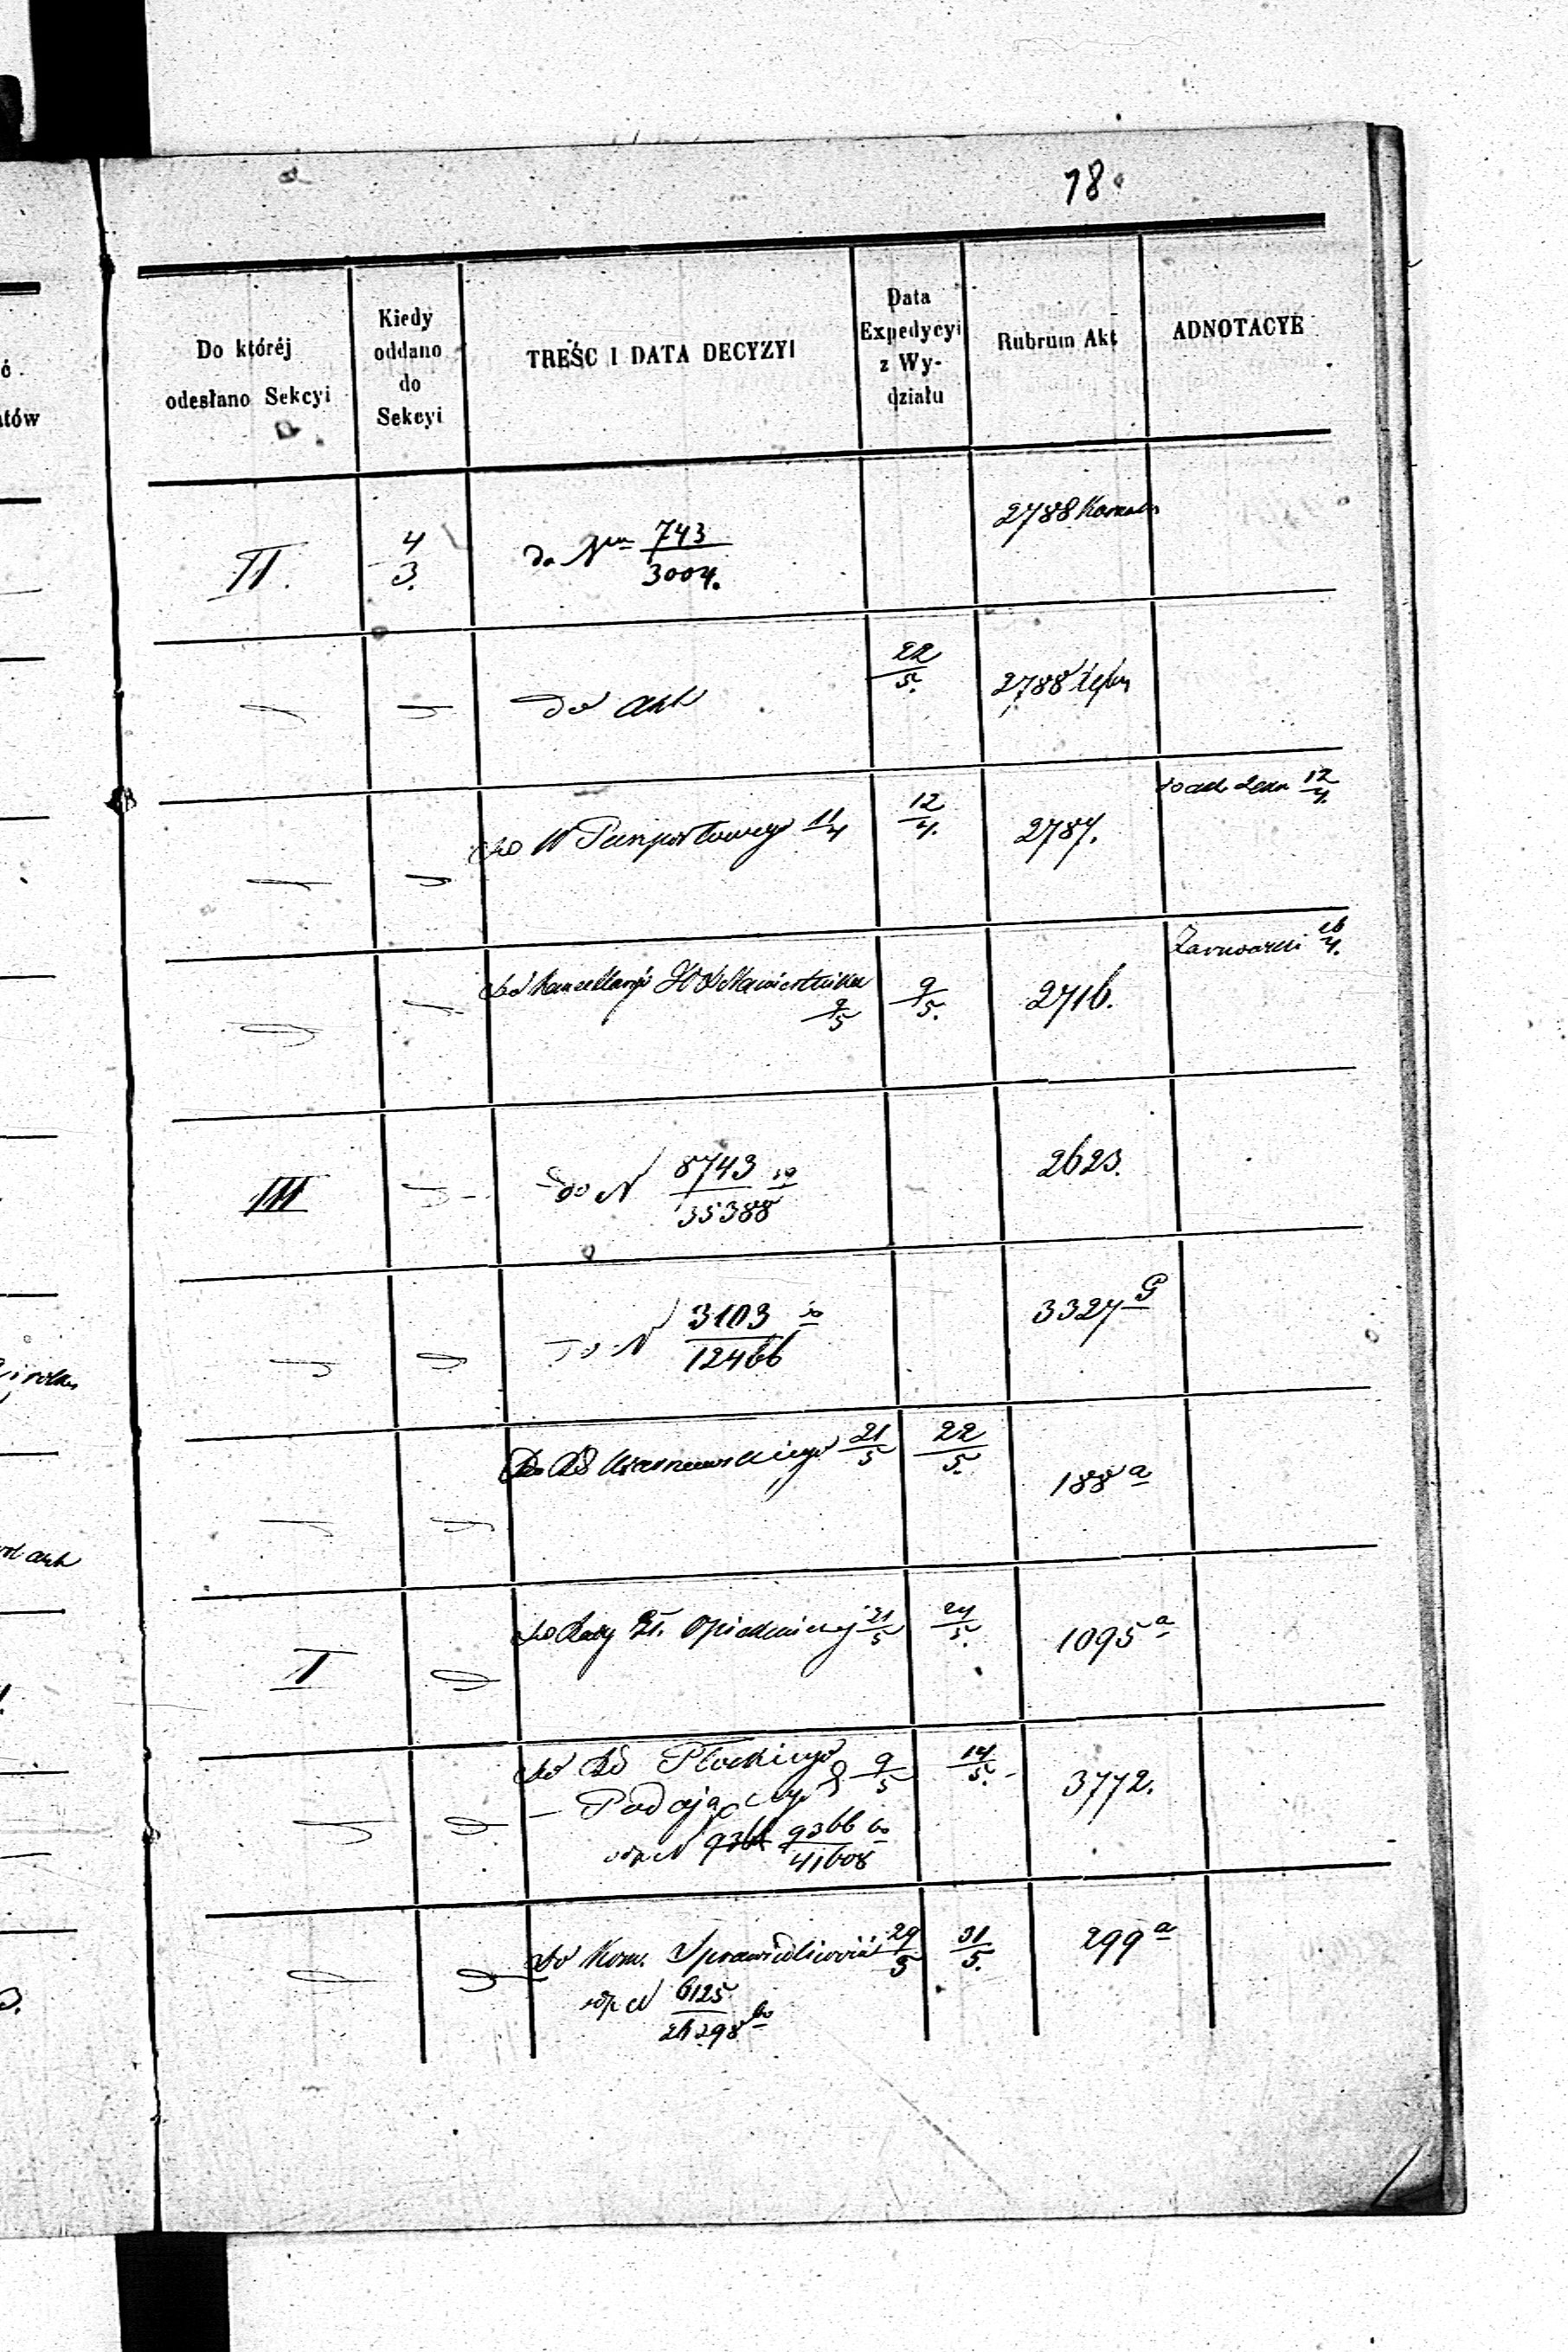 78
Do któréj
odesłano Sekcyi
Kiedy
oddano
do
Sekcyi
TREŚC I DATA DECYZYI
Data
Expedycyi
z Wy-
działu
Rubrum Akt
ADNOTACYE
II.
4/3.
do Nru 743/3004.
2788
do akt
22/5.
2788
do W Paszportowego 11/4
12/4.
2787.
do akt 12/4.
do Kancellaryi JO X Namiestnika
9/5
9/5.
2716.
16/4.
III
do N 8743/35388
2623.
do N 3103/12466
3327 G
Do RG 21/5
22/5.
188 a
I
do Rady Gł. Opiekuńczej 21/5
24/5.
1095 a
do RG Płockiego
– Podający 9/5
N 9366/41608
14/5.
3772.
do Kom. Sprawiedliwości 29/5
N 6125/26298
31/5.
299 a
ć
tów
akt